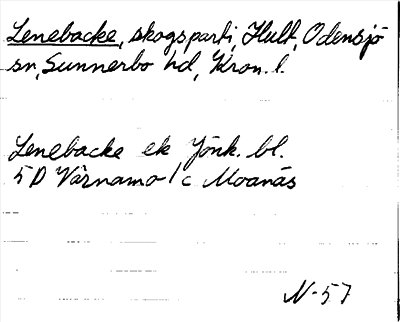 Lenebacke, skogsparti, Hult, Odensjö
sn, Sunnerbo hd, Kron. l.
Lenebacke ek Jönk. bl.
5D Värnamo / c Moanäs
N-57